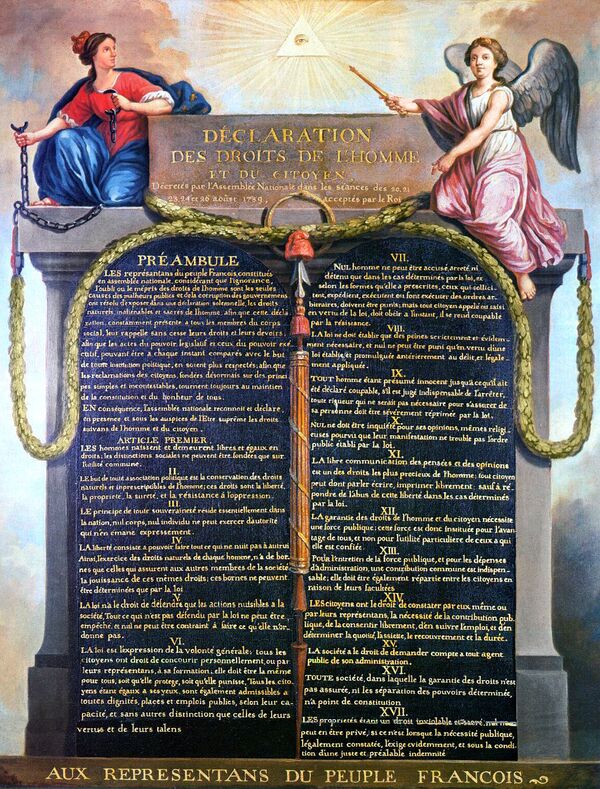 DÉCLARATION
DES DROITS DE L'HOMME
ET DU CITOYEN,
Décretés par l'Assemblée Nationale dans les séances des 20, 21
23, 24 et 26 aoust 1789, acceptés par le Roi
PRÉAMBULE
LES représentans du peuple François, constitués
en assemblée nationale, considérant que l'ignorance,
l'oubli ou le mépris des droits de l'homme sont les seules
causes des malheurs publics et de la corruption des gouvernemens
ont résolu d'exposer dans une déclaration solemnelle, les droits
naturels, inaliénables et sacrés de l'homme; afin que cette décla
ration, constamment présente a tous les membres du corps
social, leur rappelle sans cesse leurs droits et leurs devoirs;
afin que les actes du pouvoir législatif et ceux du pouvoir exé
cutif, pouvant être a chaque instant comparés avec le but
de toute institution politique, en soient plus respectés; afin que
les reclamations des citoyens, fondées désormais sur des princi
pes simples et incontestables, tournent toujours au maintien
de la constitution et du bonheur de tous.
EN conséquence, l'assemblée nationale reconnoit et déclare,
en presence et sous les auspices de l'Etre suprême les droits
suivans de l'homme et du citoyen.
ARTICLE PREMIER.
LES hommes naissent et demeurent libres et égaux en
droits; les distinctions sociales ne peuvent être fondées que sur
l'utilité commune.
II.
LE but de toute association politique est la conservation des droits
naturels et inprescriptibles de l'homme; ces droits sont la liberté,
la propriété, la sureté, et la résistance à l'oppression.
III.
LE principe de toute souveraineté réside essentiellement dans
la nation, nul corps, nul individu ne peut exercer d'autorité
qui n'en émane expressement.
IV.
LA liberté consiste a pouvoir faire tout ce qui ne nuit pas à autrui
Ainsi, l'exercice des droits naturels de chaque homme, n'a de bor-
nes que celles qui assurent aux autres membres de la société
la jouissance de ces mêmes droits; ces bornes ne peuvent
être déterminées que par la loi
V.
LA loi n'a le droit de défendre que les actions nuisibles a la
société. Tout ce qui n'est pas défendu par la loi ne peut être
empêché, et nul ne peut être contraint à faire ce qu'elle n'or-
donne pas.
VI.
LA loi est l'expression de la volonté générale; tous les
citoyens ont droit de concourir personnellement, ou par
leurs représentans, à sa formation; elle doit être la même
pour tous, soit qu'elle protege, soit qu'elle punisse, Tous les cito
yens étant égaux à ses yeux, sont également admissibles a
toutes dignités, places et emplois publics, selon leur ca
pacité, et sans autres distinction que celles de leurs
vertus et de leurs talens
VII.
NUL homme ne peut être accusé, arreté ni
détenu que dans les cas déterminés par la loi, et
selon les formes qu'elle a prescrites, ceux qui sollici
tent, expédient, exécutent ou font exécuter des ordres ar
bitraires, doivent être punis; mais tout citoyen appelé ou saisi
en vertu de la loi, doit obéir a l'instant, il se rend coupable
par la résistance.
VIII.
LA loi ne doit établir que des peines strictement et évidem
ment nécessaire, et nul ne peut être puni qu'en vertu d'une
loi établie et promulguée antérierement au délit, et légale
ment appliquée.
IX.
TOUT homme étant présumé innocent jusqu'a ce qu'il ait
été déclaré coupable, s'il est jugé indispensable de l'arrêter,
toute rigueur qui ne serait pas nécessaire pour s'assurer de
sa personne doit être sévèrement réprimée par la loi.
X.
NUL ne doit être inquiété pour ses opinions, mêmes religi
euses pourvu que leur manifestation ne trouble pas l'ordre
public établi par la loi.
XI.
LA libre communication des pensées et des opinions
est un des droits les plus precieux de l'homme; tout citoyen
peut dont parler écrire, imprimer librement: sauf à ré
pondre de l'abus de cette liberté dans les cas déterminés
par la loi.
XII.
LA garantie des droits de l'homme et du citoyen nécessite
une force publique; cette force est donc instituée pour l'avan
tage de tous, et non pour l'utilité particuliere de ceux a qui
elle est confiée.
XIII.
Pour l'entretien de la force publique, et pour les dépenses
d'administration, une contribution commune est indispen-
sable; elle doit être également répartie entre les citoyens en
raison de leurs facultées
XIV.
LES citoyens ont le droit de constater par eux même ou
par leurs représentans, la nécessité de la contribution pub
lique, de la consentir librement, d'en suivre l'emploi, et d'en
déterminer la quotité, l'assiette, le recouvrement et la durée.
XV.
LA société a le droit de demander compte a tout agent
public de son administration.
XVI.
TOUTE société, dans laquelle la garantie des droits n'est
pas assurée, ni les séparation des pouvoirs déterminée,
n'a point de constitution
XVII.
LES propriétés étant un droit inviolable et sacré, nul ne
peut en être privé, si ce n'est lorsque la nécessité publique,
légalement constatée, l'exige évidemment, et sous la condi
tion d'une juste et préalable indemnité
AUX REPRESENTANS DU PEUPLE FRANCOIS